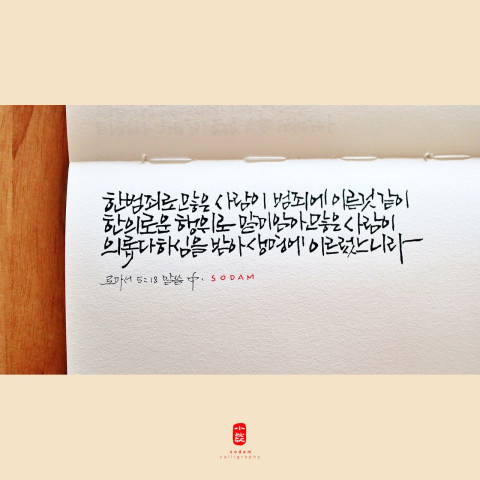 한범죄로 많은 사람이 범죄에 이른것 같이
한의로운 행위로 말미암아 많은 사람이
의롭다하심을 받아 생명에 이르렀느니라
로마서 5:18 말씀 中. SODAM
小
sodam
calligraphy